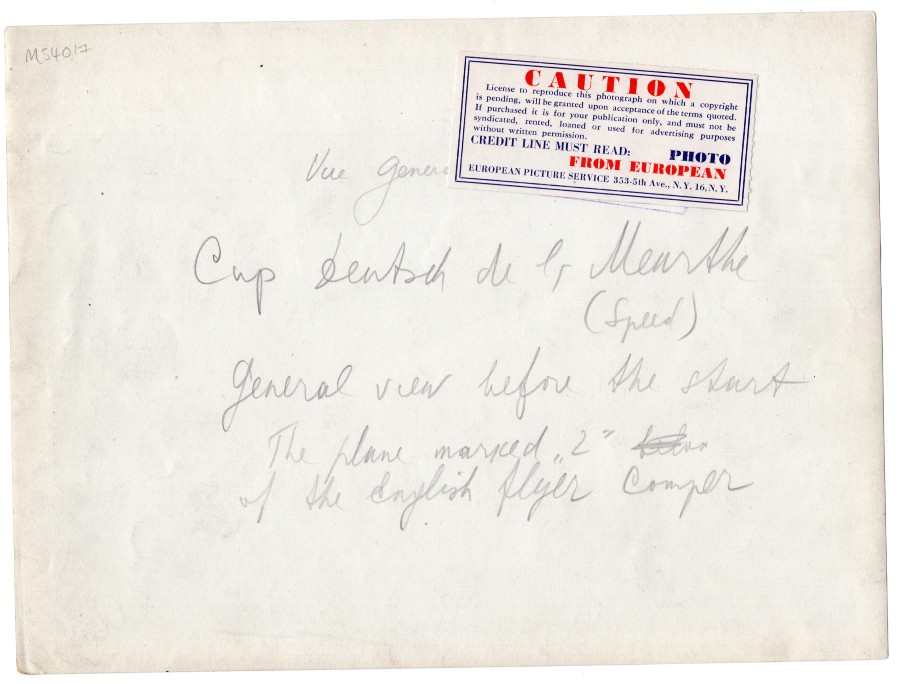 M54017
CAUTION
License to reproduce this photograph on which a copyright
is pending, will be granted upon acceptance of the terms quoted.
If purchased it is for your publication only, and must not be
syndicated, rented, loaned or used for advertising purposes
without written permission.
CREDIT LINE MUST READ: PHOTO
FROM EUROPEAN
EUROPEAN PICTURE SERVICE 353-5th Ave., N.Y. 16, N.Y.
Vue genera
Cup Deutsch de la Meurthe
(Speed)
General view before the start
The plane marked „2”
of the English flyer Comper